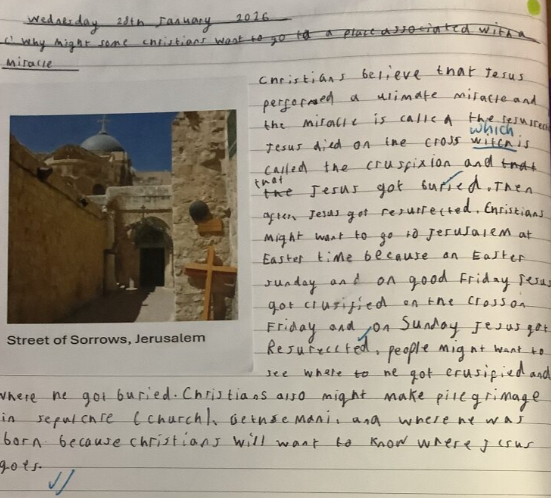 Wednesday 20th January 2016
L: Why might some christians want to go to a place associated with a
miracle
Christians believe that Jesus
performed a ulimate miracle and
the miracle is called the resurrect
Jesus died on the cross witch is
which
called the cruspixion and that
that
the Jesus got buried. Then
after Jesus got resurrected. Christians
might want to go to Jerusalem at
Easter time because on Easter
sunday and on good Friday Jesus
got crusified on the cross on
Friday and on Sunday Jesus got
Resureccted. people might want to
see where to he got crusified and
where he got buried. Christians also might make pilegrimage
in sepulchre (church), Gethsemani, and where he was
born because christians will want to know where Jesus
goes.
Street of Sorrows, Jerusalem